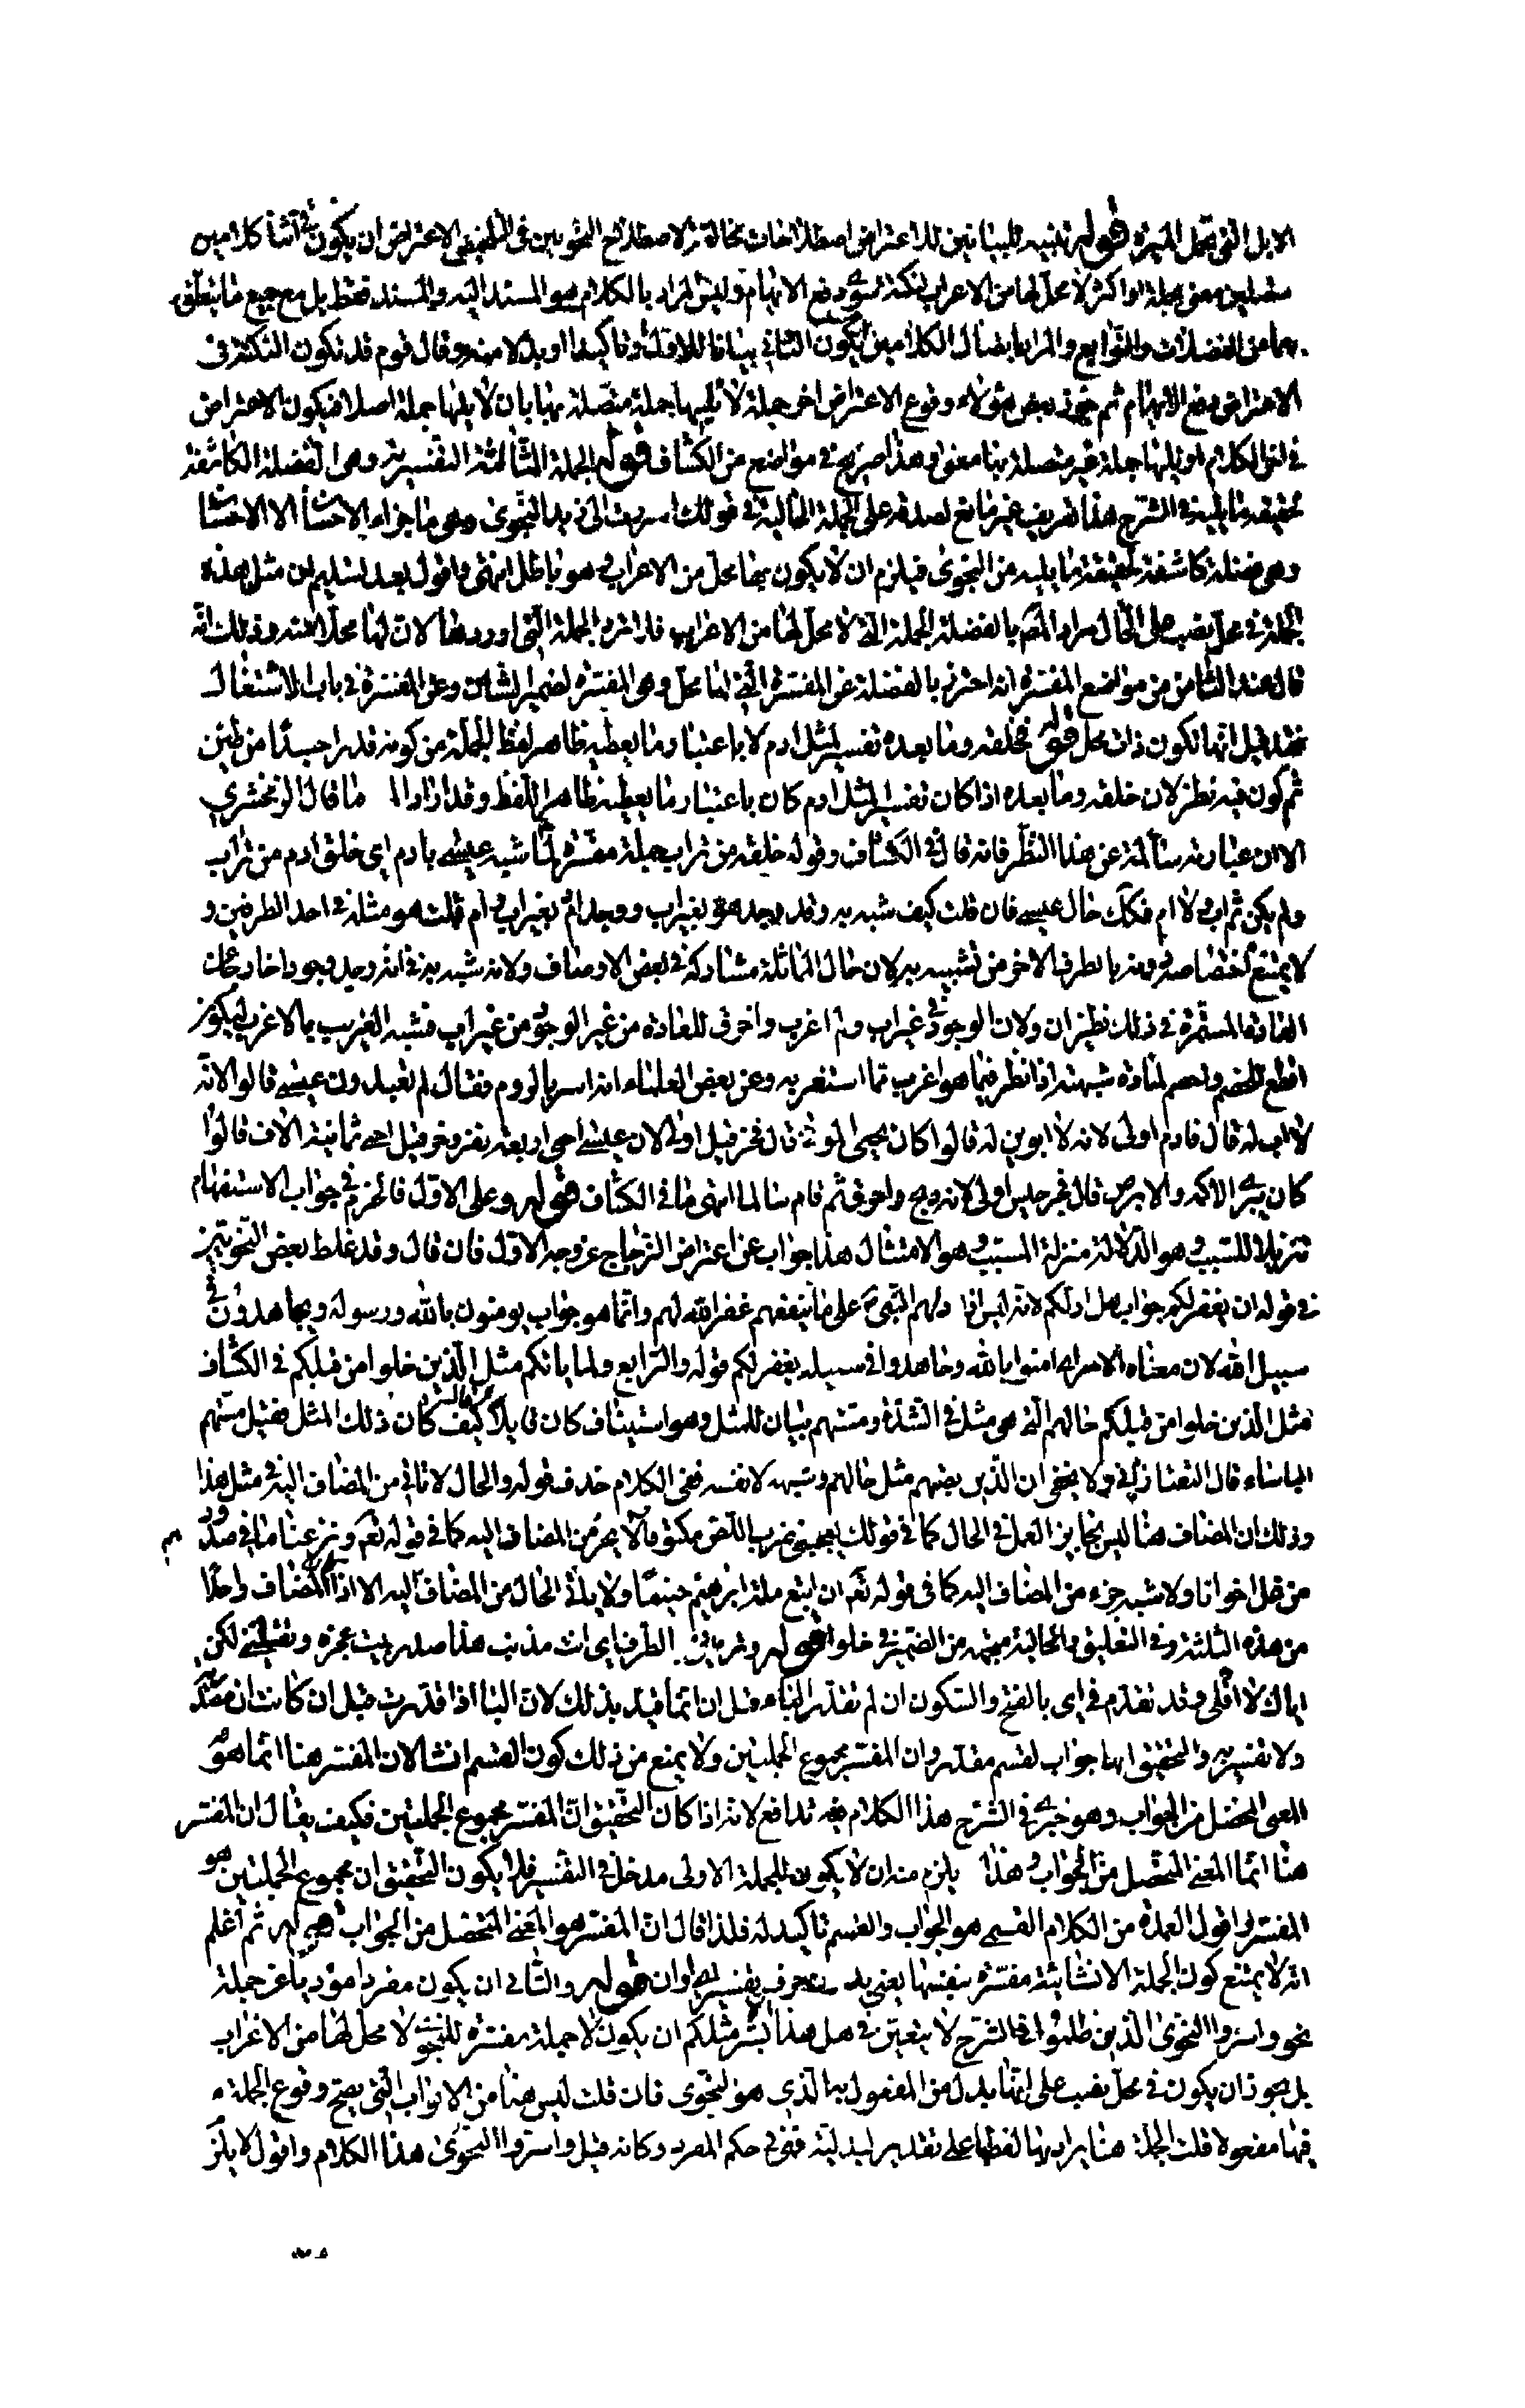 الابل التي تحمل الميرة قوله تنبيه للبيانيين للاعتراض اصطلاحات مخالفة لاصطلاح النحويين في التلخيص الاعتراض ان يكون في اثنا كلام او بين كلامين
متصلين معنى بجملة او اكثر لا محل لها من الاعراب لنكتة سوى دفع الايهام وليس المراد بالكلام هو المسند اليه والمسند فقط بل مع جميع ما يتعلق
بهما من الفضلات والتوابع والمراد باتصال الكلامين ان يكون الثاني بيانا للاول او تاكيدا او بدلا منه وقال قوم قد تكون النكتة في
الاعتراض دفع الايهام ثم جوز بعض هؤلاء وقوع الاعتراض اخر جملة لا تليها جملة متصلة بها بان لا يليها جملة اصلا فيكون الاعتراض
في اخر الكلام او يليها جملة غير متصلة بها معنى وهذا صريح في مواضع من الكشاف قوله الجملة الثالثة التفسيرية وهي الفضلة الكاشفة
لحقيقة ما تليه في الشرح هذا تعريف غير مانع لصدقه على الجملة الحالية في قولك اسررت الى زيد النجوى وهي ما جزاء الاحسان الا الاحسان
وهي فضلة كاشفة لحقيقة ما يليه من النجوى فيلزم ان لا يكون لها محل من الاعراب وهو باطل انتهى واقول بعد تسليم ان مثل هذه
الجملة في محل نصب على الحال مراد المص بالفضلة الجملة التي لا محل لها من الاعراب فلا ترد الجملة التي اوردها لان لها محلا عنده وذلك انه
قال عند الثامن من مواضع المفسرة انه احترز بالفضلة عن المفسرة التي لها محل وهي المفسرة لضمير الشان وعن المفسرة في باب الاشتغال
فقد قيل انها تكون ذات محل قوله فخلقه وما بعده تفسير لمثل ادم لا باعتبار ما يعطيه ظاهر لفظ الجملة من كونه قدر جسدا من طين
ثم كون فيه نظر لان خلقه وما بعده اذا كان تفسيرا لمثل ادم كان باعتبار ما يعطيه ظاهر اللفظ وقد اراد ما قال الزمخشري
الا ان عبارته سالمة عن هذا النظر فانه قال في الكشاف وقوله خلقه من تراب جملة مفسرة لما شبه عيسى بادم اي خلق ادم من تراب
ولم يكن ثم اب ولا ام فكذلك حال عيسى فان قلت كيف شبه به وقد وجد هو بغير اب ووجد ادم بغير اب وام قلت هو مثله في احد الطرفين و
لا يمنع اختصاصه دونه بالطرف الاخر من تشبيهه به لان حال المماثلة مشاركة في بعض الاوصاف ولانه شبه به في انه وجد وجودا خارجا عن
العادة المستمرة في ذلك نظيران ولان الوجود في غير اب وام اغرب واخرق للعادة من غير الوجود من غير اب فشبه الغريب بالاغرب ليكون
اقطع للخصم واحسم لمادة شبهته اذا نظر فيما هو اغرب مما استغربه وعن بعض العلماء انه اسر بالروم فقال لم تعبدون عيسى قالوا لانه
لا اب له قال فادم اولى لانه لا ابوين له قالوا كان يحيى الموتى قال فحزقيل اولى لان عيسى احيى اربعة نفر وحزقيل احيى ثمانية الاف قالوا
كان يبرئ الاكمه والابرص قال فجرجيس اولى لانه طبخ واحرق ثم قام سالما انتهى ما في الكشاف قوله وعلى الاول فالجزم في جواب الاستفهام
تنزيلا للسبب وهو الدلالة منزلة المسبب وهو الامتثال هذا جواب عن اعتراض الزجاج عن وجه الاول فان قال وقد غلط بعض النحويين
في قوله ان يغفر لكم جواب هل ادلكم لانه ليس اذا دلهم النبي على ما ينفعهم غفر الله لهم وانما هو جواب يومنون بالله ورسوله ويجاهدون في
سبيل الله لان معناه الامر اي امنوا بالله وجاهدوا في سبيله يغفر لكم قوله والرابع ولما ياتكم مثل الذين خلوا من قبلكم في الكشاف
مثل الذين خلوا من قبلكم حالهم التي هي مثل في الشدة ومستهم بيان للمثل وهو استيناف كان قايلا كيف كان ذلك المثل فقيل مستهم
الباساء قال التفتازاني ولا يخفى ان الذين بعضهم مثل حالهم وشبهه لا نفسه ففي الكلام حذف قوله والحال لا تاتي من المضاف اليه في مثل هذا
وذلك ان المضاف هنا ليس بجايز العمل في الحال كما في قولك يعجبني ضرب اللص مكتوفا ولا جزء من المضاف اليه كما في قوله تع ونزعنا ما في صدورهم
من غل اخوانا ولا شبه جزء من المضاف اليه كما في قوله تع ان اتبع ملة ابرهيم حنيفا ولا ياتي الحال من المضاف اليه الا اذا كان المضاف واحدا
من هذه الثلثة وفي التعليق والحالية مجتهد من الضمير في خلوا قوله وترمينني بالطرف اي انت مذنب هذا صدر بيت عجزه وتقلينني لكن
اياك لا اقلي وقد تقدم في اي بالفتح والسكون ان لم تقدر الباء قبل ان انما قيد بذلك لان البا اذا قدرت قبل ان كانت ان مصدرية
ولا تفسيرية والتحقيق انها جواب لقسم مقدر وان المفسر مجموع الجملتين ولا يمنع من ذلك كون القسم انشا لان المفسر هنا انما هو
المعنى المتحصل من الجواب وهو خبري في الشرح هذا الكلام فيه تدافع لانه اذا كان التحقيق ان المفسر مجموع الجملتين فكيف يقال ان المفسر
هنا انما المعنى المتحصل من الجواب وهذا يلزم منه ان لا يكون للجملة الاولى مدخل في التفسير فلا يكون التحقيق ان مجموع الجملتين هو
المفسر واقول العمدة من الكلام القسمي هو الجواب والقسم تاكيد له فلذا قال ان المفسر هو المعنى المتحصل من الجواب قوله ثم اعلم
انه لا يمتنع كون الجملة الانشائية مفسرة بنفسها يعني بدون حرف تفسير اي او ان قوله والثاني ان يكون مفردا مؤديا عن جملة
نحو واسروا النجوى الذين ظلموا في الشرح لا يتعين في هل هذا الا بشر مثلكم ان يكون جملة مفسرة للنجوى لا محل لها من الاعراب
بل يجوز ان يكون في محل نصب على انها بدل من المفعول به الذي هو النجوى فان قلت ليس هنا من الابواب التي يصح وقوع الجملة
فيها مفعولا قلت الجملة هنا يراد بها لفظها على تقدير البدلية فهي في حكم المفرد وكانه قيل واسروا النجوى هذا الكلام واقول لا يلزم